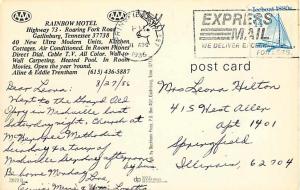 RAINBOW MOTEL
Highway 73 - Roaring Fork Road
Gatlinburg, Tennessee 37738
40 New Ultra Modern Units. Kitchen
Cottages. Air Conditioned. In Room Phones
Direct Dial, Cable T.V. All Color. Wall-to-
Wall Carpeting. Heated Pool. In Room
Movies. Open the year 'round.
Aline & Eddie Trentham (615) 436-5887
8/27/86
Dear Leona:
Went to the Grand Old
Opry in Nashville last
Saturday night, Church at
McKendree Methodist
Sunday & a tour of
Nashville Sunday afternoon
Be home Monday
Love,
AUG
1986
EXPRESS
MAIL
WE DELIVER
post card
Mrs Leona Hilton
415 West Allen
Apt 1401
Springfield
Illinois, 62704